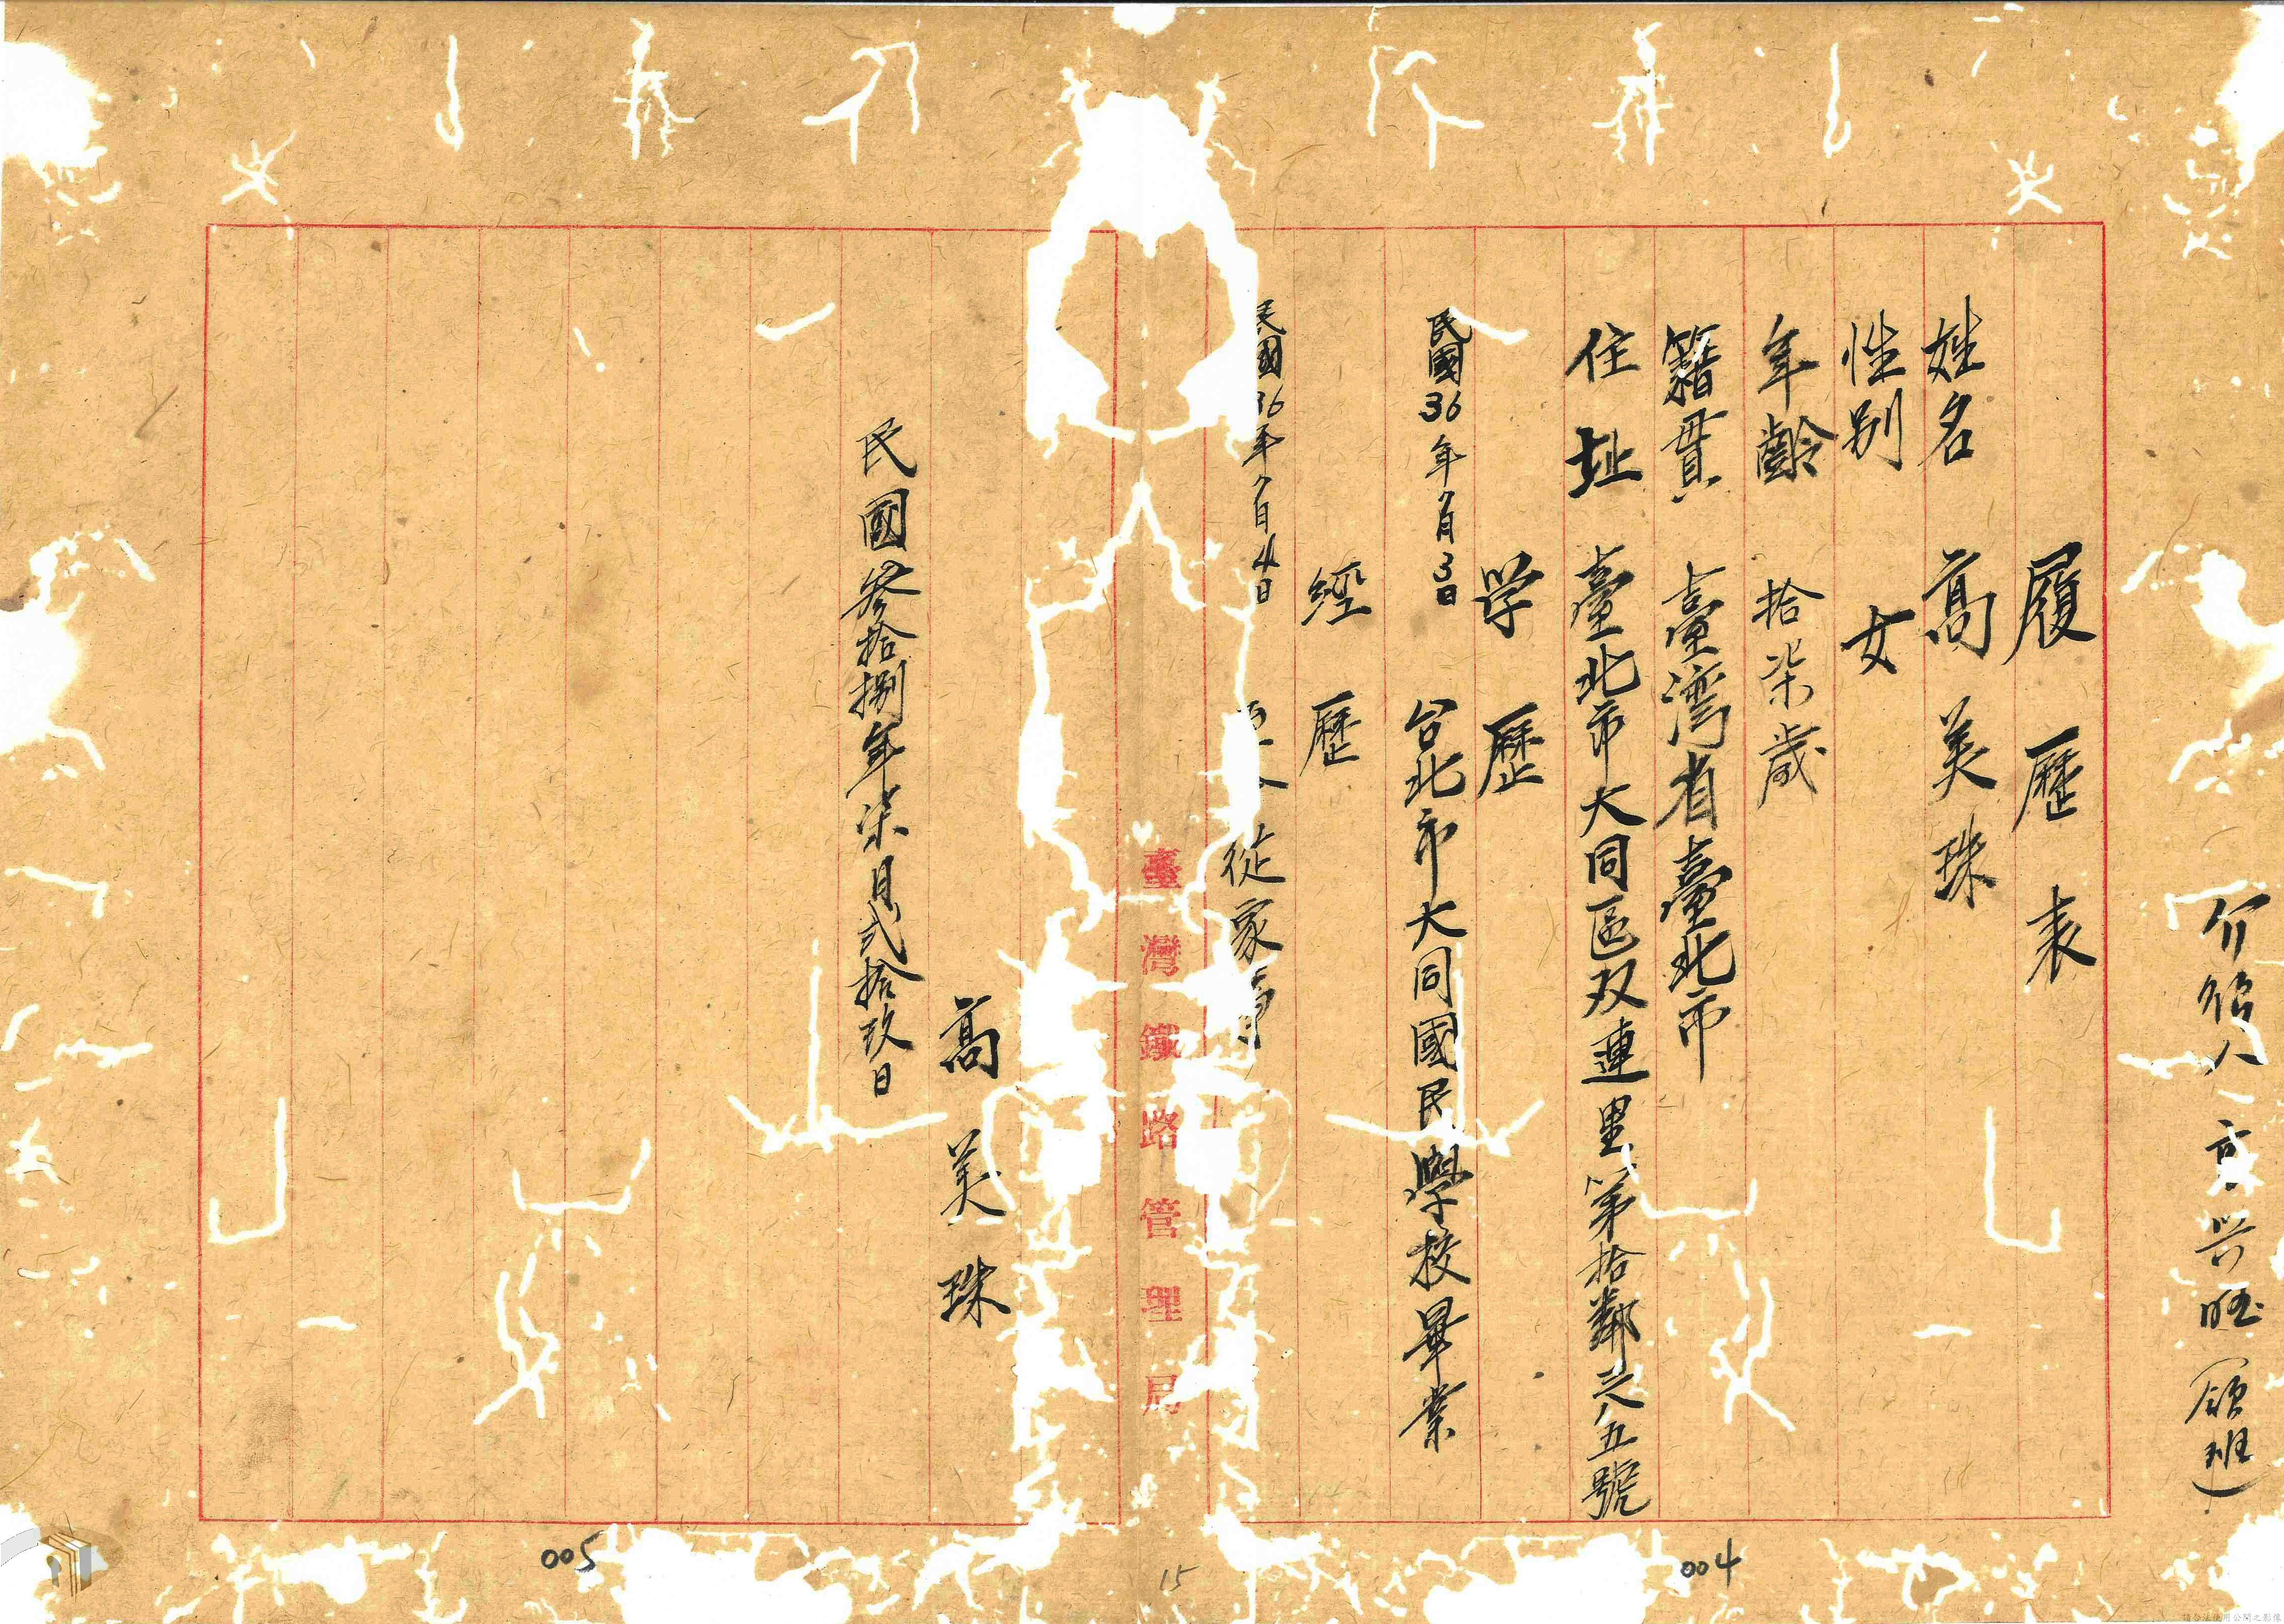 介紹人 高兴旺（領班）
履歷表
姓名 高美珠
性別 女
年齡 拾柒歲
籍貫 臺湾省臺北市
住址 臺北市大同區双連里第拾鄰六八五號
学歷
民國36年7月3日 台北市大同國民學校畢業
經歷
民國36年7月4日 從家事
臺灣鐵路管理局
高美珠
民國叁拾捌年柒月貳拾玖日
004
15
005